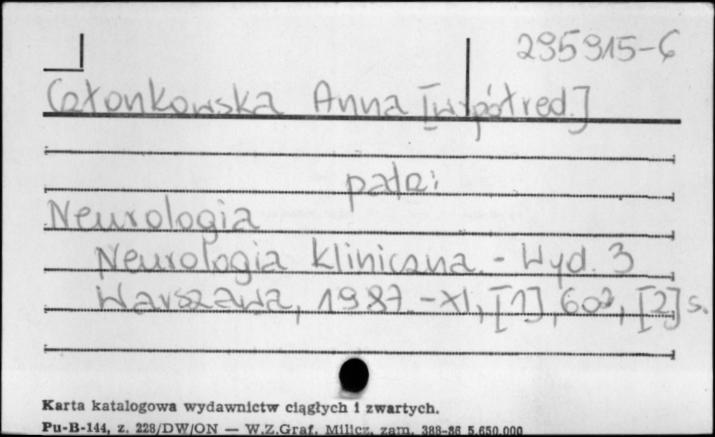 295915-6
Członkowska Anna [współred.]
patrz:
Neurologia
Neurologia kliniczna. - Wyd. 3
Warszawa, 1987. - XI, [1], 602, [2] s.
Karta katalogowa wydawnictw ciągłych i zwartych.
Pu-B-144, z. 228/DW/ON — W.Z.Graf. Milicz, zam. 388-86 5.650.000